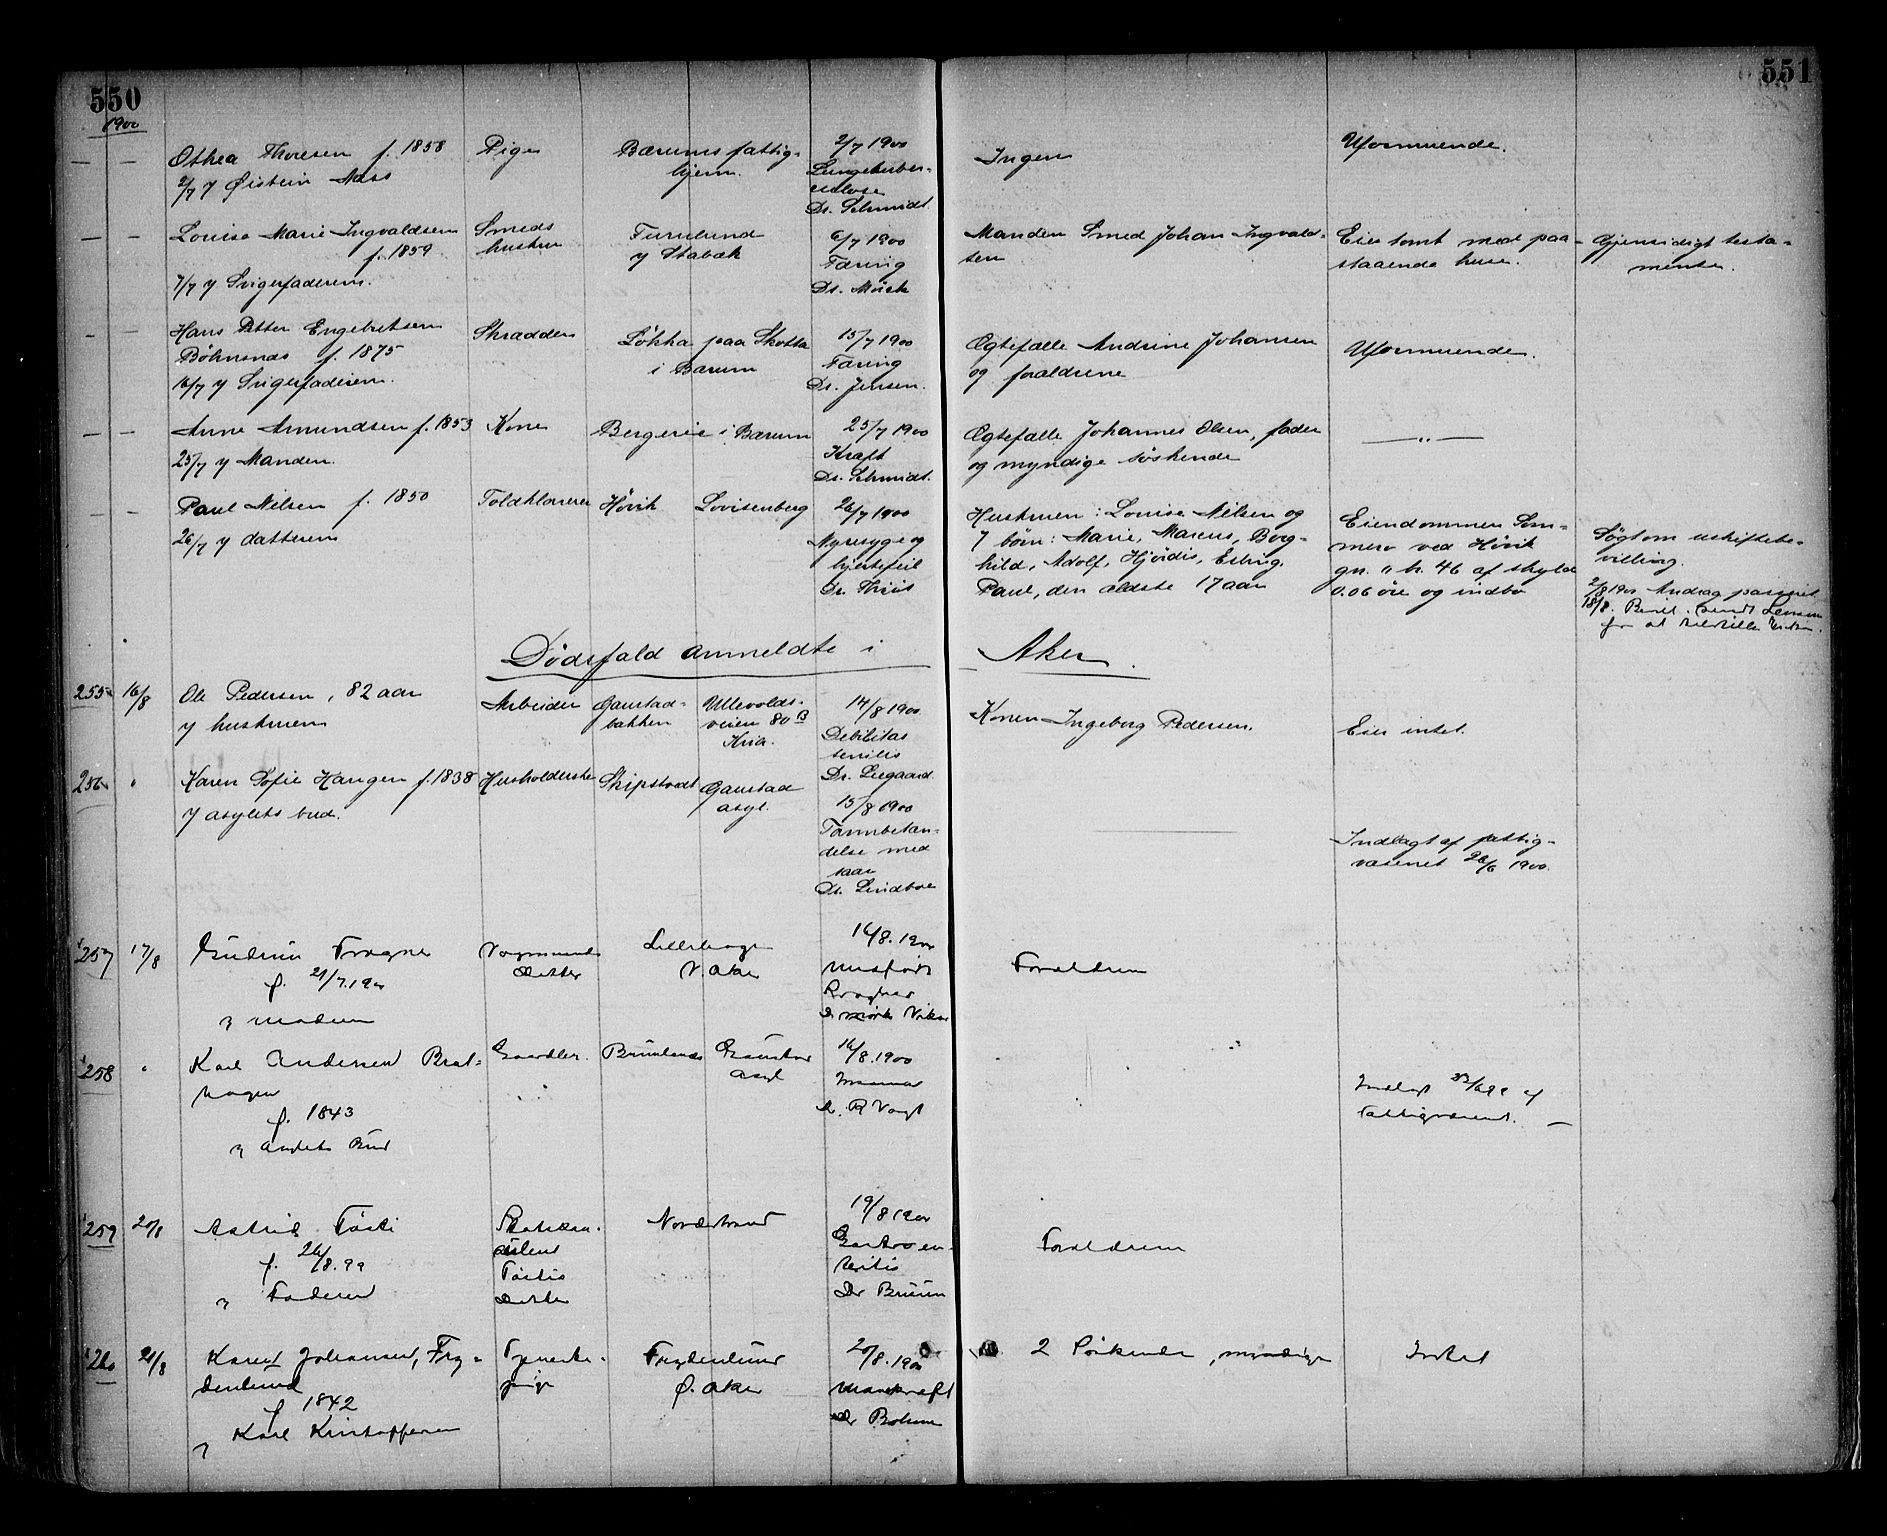 550
551
1900
— — Othea Thoresen f. 1858
2/7 v Øistein Næss
Pige
Bærums fattig-
hjem.
2/7 1900
Lungetuber-
culose
Dr. Schmidt.
Ingen
Uformuende.
— — Louise Marie Ingvaldsen
f. 1859
7/7 v Svigerfaderen.
Smeds
hustru
Furulund
v Stabæk
6/7 1900
Tæring
Dr. Mörch
Manden Smed Johan Ingvald-
sen
Eier tomt med paa-
staaende huse.
Gjensidigt testa-
mente.
— — Hans Petter Engebretsen
f. 1875
16/7 v Svigerfaderen.
Skrædder
Løkka paa Skotta
i Bærum
15/7 1900
Tæring
Dr. Jensen.
Ægtefælle Andrine Johansen
og forældrene
Uformuende.
— — Anne Amundsen f. 1853
25/7 v Manden.
Kone
Bergerie i Bærum
25/7 1900
Kræft
Dr. Schmidt.
Ægtefælle Johannes Olsen, fader
og myndige søskende
— " —
— — Paul Nilsen f. 1850
26/7 v datteren
Toldklarerer
Høvik
Lovisenberg
26/7 1900
Nyresyge og
hjertefeil
Dr. Thiis
Hustruen: Louise Nilsen og
7 børn: Marie, Marcus, Borg-
hild, Adolf, Hjørdis, Erling,
Paul, den ældste 17 aar
Eiendommen Som-
mero ved Høvik
gn. " br. 46 af skyld
0.06 øre og indbo
Søgt om uskiftebe-
villing.
2/8 1900 Andrag passeret
18/8. Bevil. sendt Lensm
for at tilstilles Enken.
Dødsfald anmeldte i Aker.
255 16/8 Ole Pedersen, 82 aar
v hustruen
Arbeider
Gaustad-
bakken
Ullevolds-
veien 80 B
Kria.
14/8 1900
Debilitas
senilis
Dr. Leegaard
Konen Ingeborg Pedersen.
Eier intet.
256 " Karen Sofie Haugen f. 1838
v asylets bud.
Husholderske
Skipstvedt
Gaustad
asyl.
15/8 1900
Tarmbetæn-
delse med
saar
Dr. Lindboe
Indlagt af fattig-
væsenet 26/6 1900.
257 17/8 Gudrun Frogner
f. 21/7.1900
v Moderen
Vognmands
Datter
V. Aker
16/8.1900
Forældrene
258 " Karl Andersen Brat-
hagen
f. 1843
v Asylets Bud
Gaardbr.
Gaustad
Asyl
16/8.1900
Dr. R Vogt
Indlagt af
Fattigvæsenet. —
259 20/8 Astrid Tøsti
f. 26/8.99
v Faderen
Tøstis
Datter
Nordstrand
19/8 1900
Gastroen-
teritis
Dr Bruun
Forældrene
260 21/8 Karen Johansen, Fry-
denlund
f 1842
v Karl Kristoffersen
Tjeneste-
pige
Frydenlund
Ø. Aker
20/8.1900
Mavekræft
Dr
2 Søskende, myndige
Intet